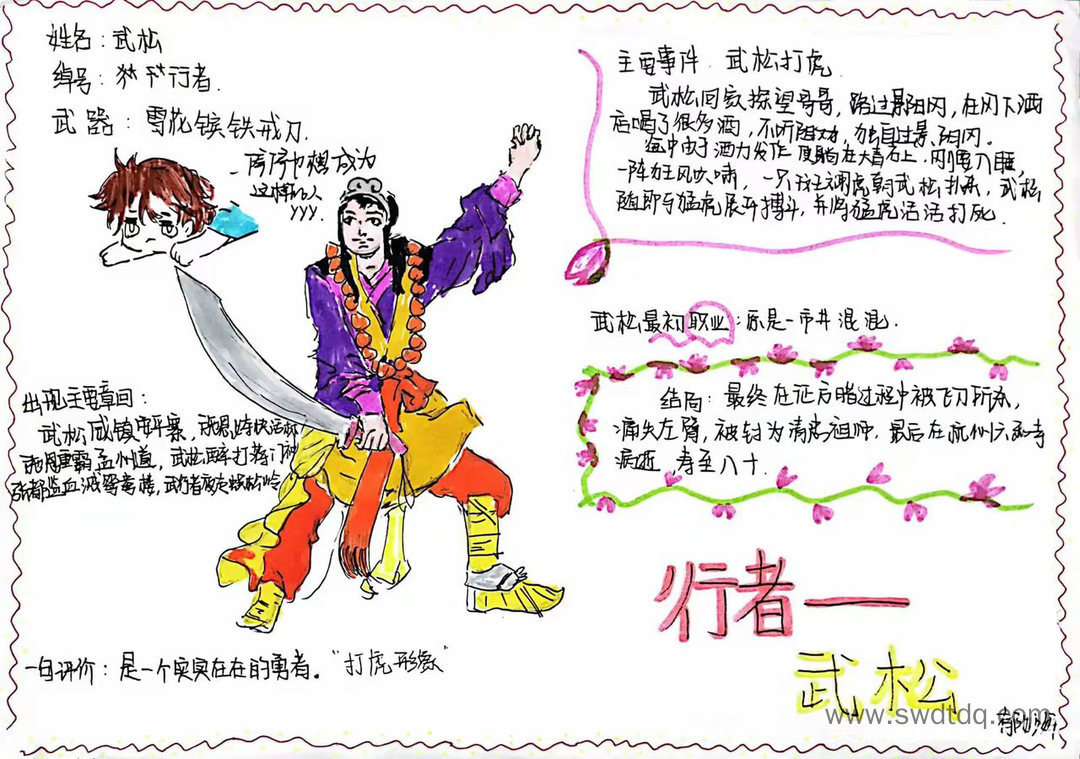 姓名：武松
绰号：行者.
武器：雪花镔铁戒刀.
想成为
这样的人
YYY.
主要事件 武松打虎.
武松回家探望哥哥，路过景阳冈，在冈下酒
店喝了很多酒，不听劝，独自过景阳冈.
途中由于酒力发作 便躺在大青石上，刚要入睡，
一阵狂风吹啸，一只斑斓虎朝武松扑来，武松
随即与猛虎展开搏斗，并将猛虎活活打死.
武松最初职业：原是一市井混混.
结局：最终在征方腊过程中被飞刀所杀，
痛失左臂，被封为清忠祖师. 最后在杭州六和寺
病逝，寿至八十.
出现主要章回：
武松威镇安平寨，施恩
施恩重霸孟州道，武松醉打蒋门神
张都监血溅鸳鸯楼，武行者夜走蜈蚣岭
一句评价：是一个实实在在的勇者。“打虎形象”
行者—
武松
www.swdtdq.com